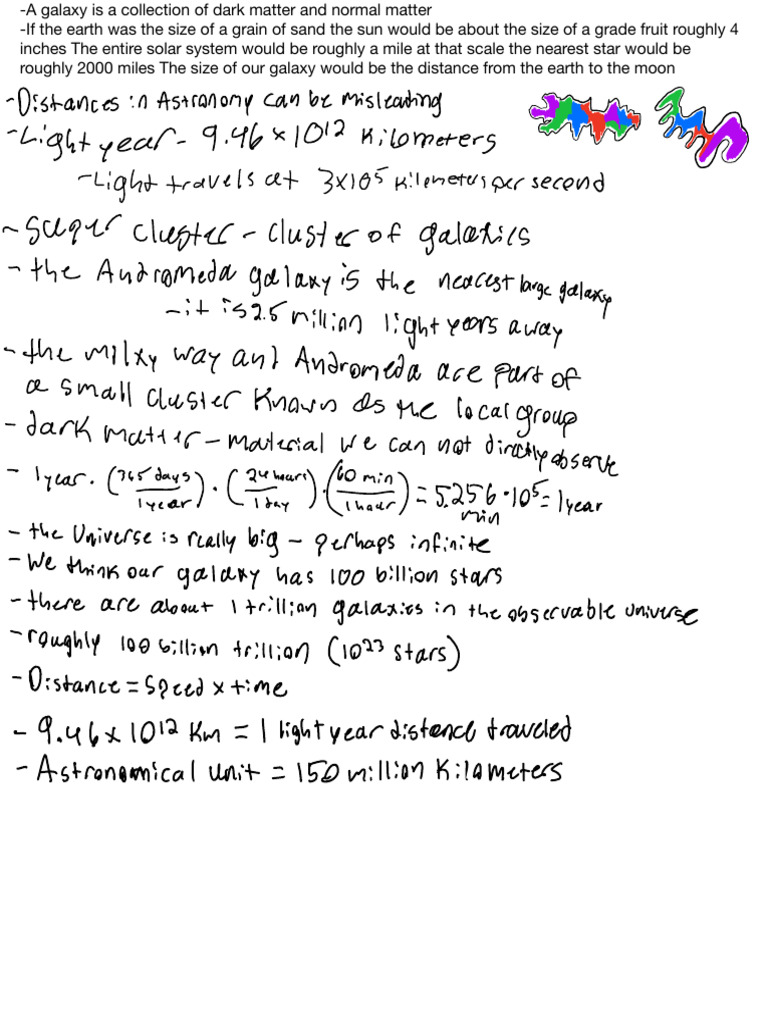 -A galaxy is a collection of dark matter and normal matter
-If the earth was the size of a grain of sand the sun would be about the size of a grade fruit roughly 4
inches The entire solar system would be roughly a mile at that scale the nearest star would be
roughly 2000 miles The size of our galaxy would be the distance from the earth to the moon
-Distances in Astronomy can be misleading
-Light year - 9.46 x 10^12 Kilometers
-Light travels at 3x10^5 Kilometers per second
- Super cluster - cluster of galaxies
- the Andromeda galaxy is the nearest large galaxy
- it is 2.5 million light years away
- the milky way and Andromeda are part of
a small cluster known as the local group
- dark matter - material we can not directly observe
- 1 year · (365 days / 1 year) · (24 hours / 1 day) · (60 min / 1 hour) = 5.256 · 10^5 min = 1 year
- the Universe is really big - perhaps infinite
- We think our galaxy has 100 billion stars
- there are about 1 trillion galaxies in the observable universe
- roughly 100 billion trillion (10^23 stars)
- Distance = Speed x time
- 9.46 x 10^12 Km = 1 light year distance traveled
- Astronomical unit = 150 million Kilometers